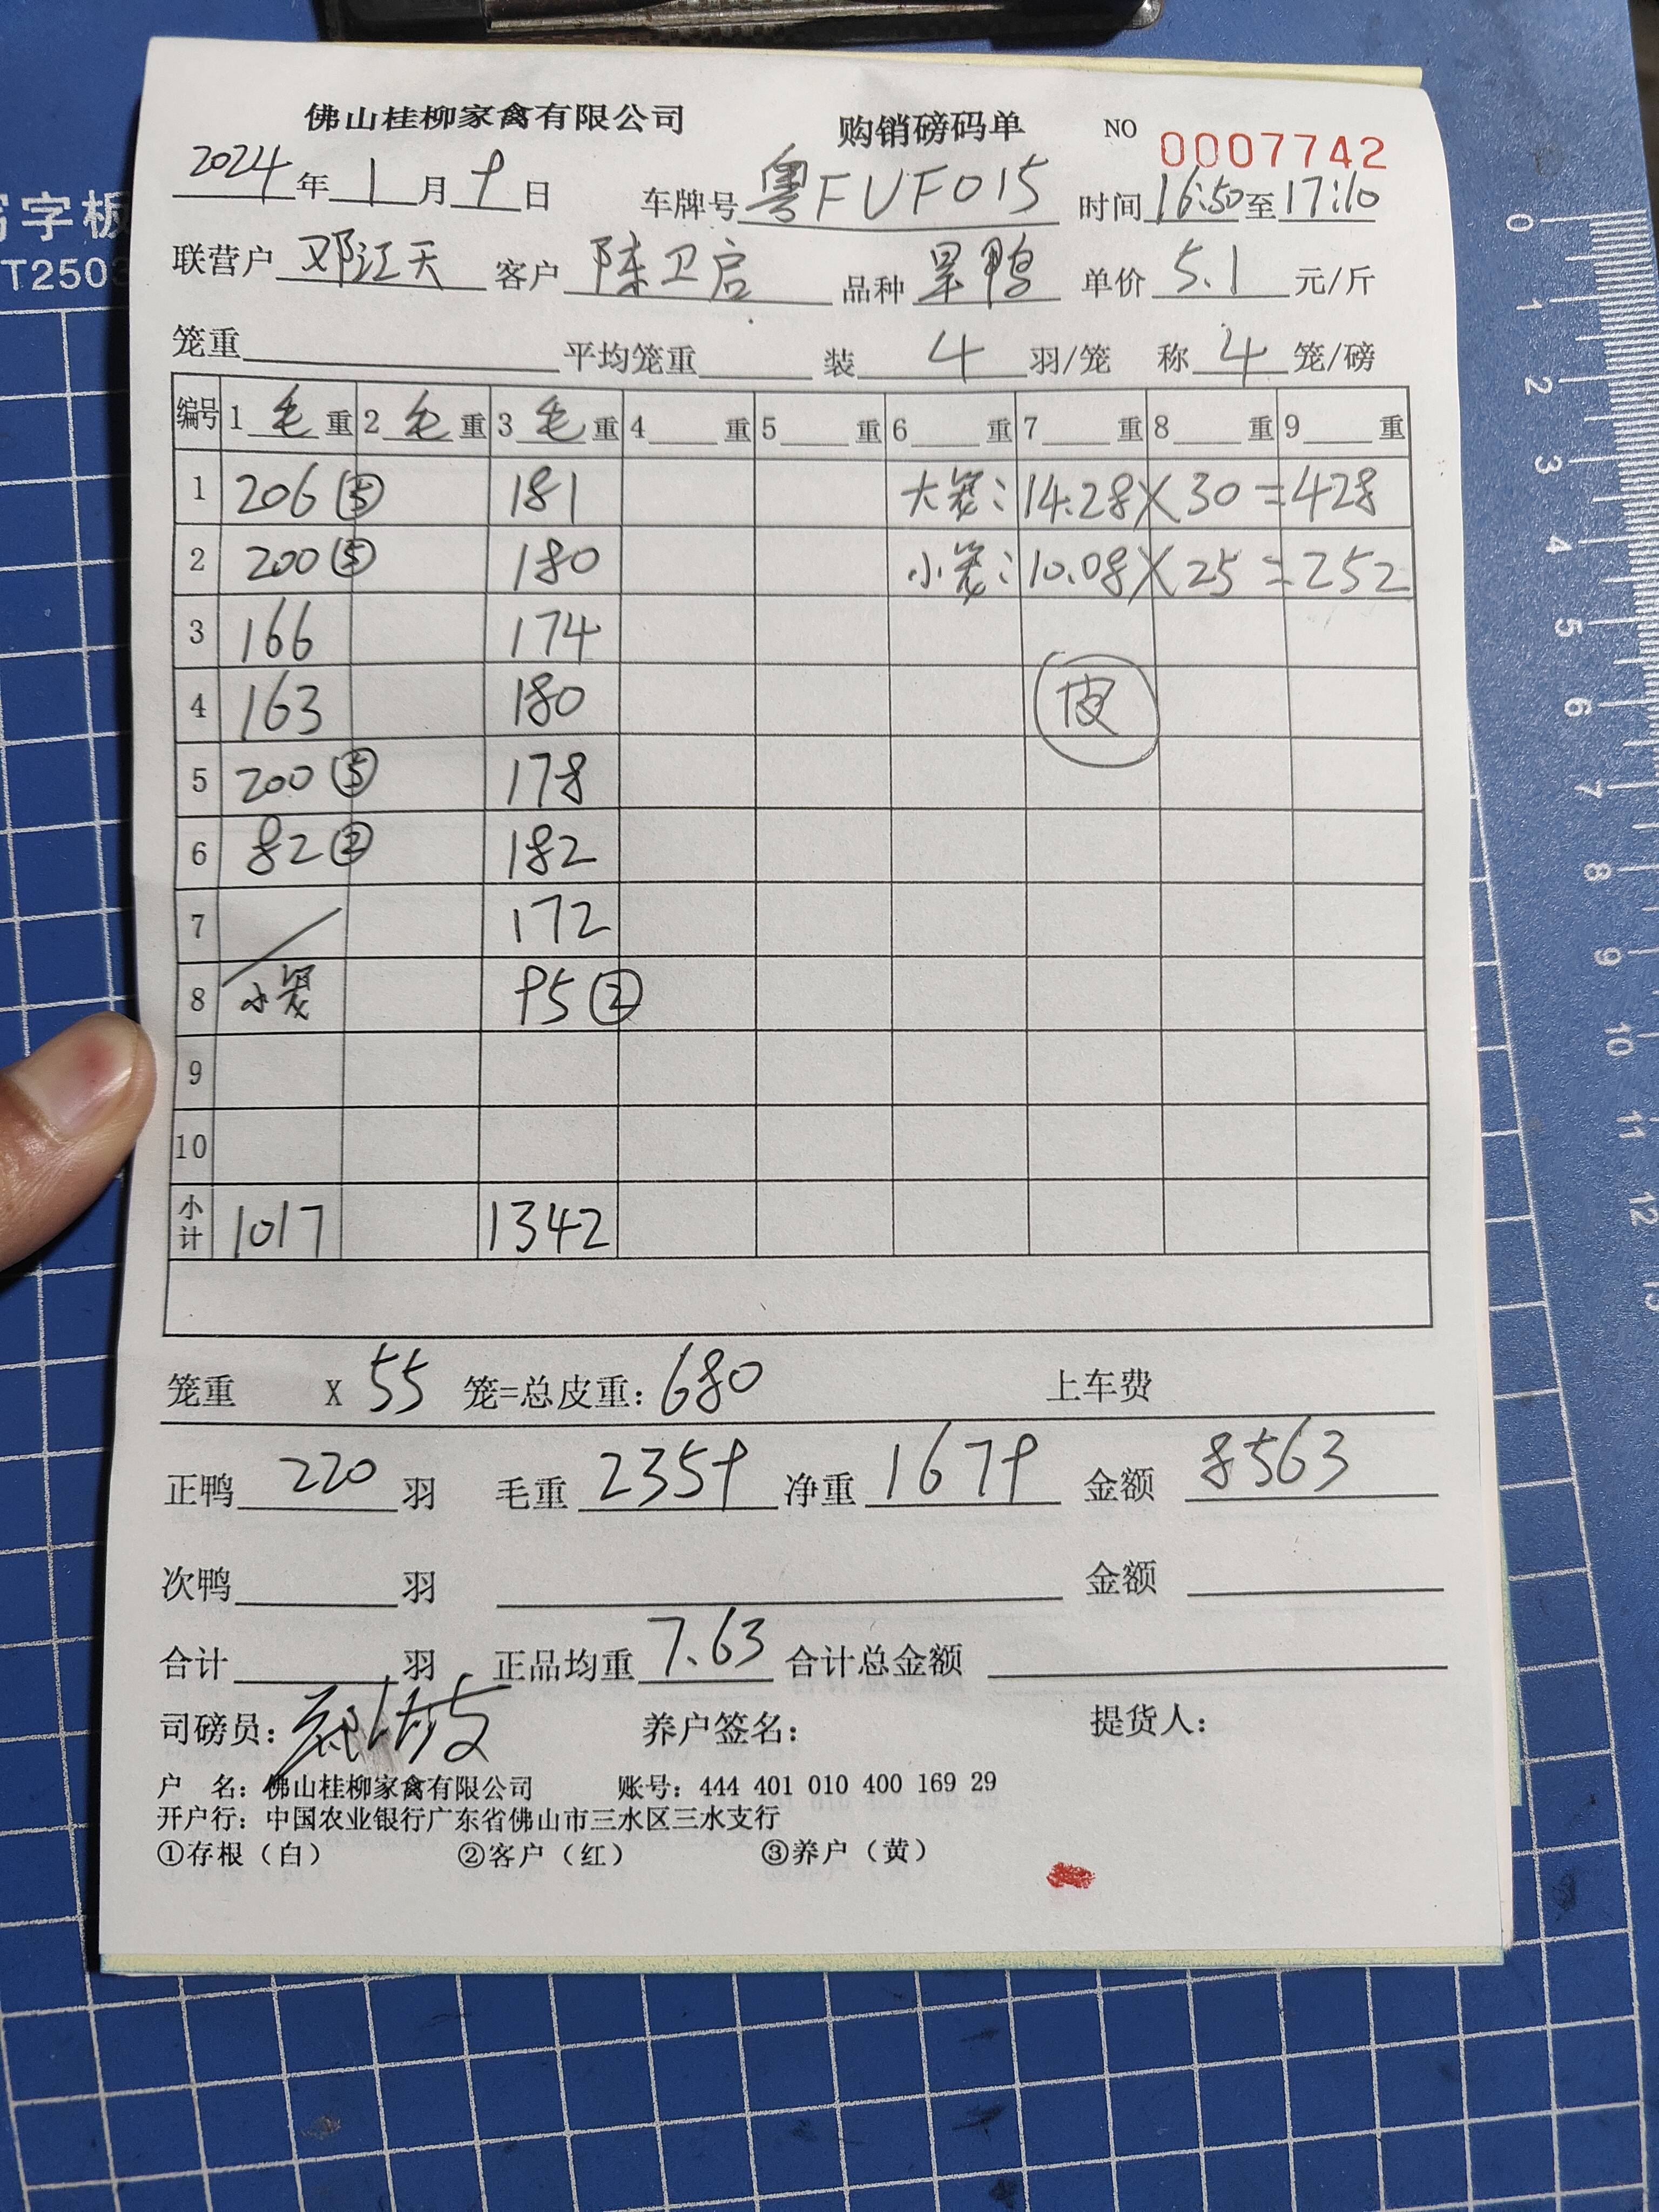 佛山桂柳家禽有限公司 购销磅码单 NO 0007742
2024年1月9日 车牌号粤FUF015 时间16:50至17:10
联营户邓江天 客户陈卫启 品种 鸭 单价5.1元/斤
笼重 平均笼重 装4羽/笼 称4笼/磅
编号 1毛重 2毛重 3毛重 4重 5重 6重 7重 8重 9重
1 206⑤ 181 大笼:14.28X30=428
2 200⑤ 180 小笼:10.08X25=252
3 166 174
4 163 180 皮
5 200⑤ 178
6 82② 182
7 172
8 小笼 95②
9
10
小计 1017 1342
笼重 X55 笼=总皮重:680 上车费
正鸭220羽 毛重2359 净重1679 金额8563
次鸭 羽 金额
合计 羽 正品均重7.63 合计总金额
司磅员: 养户签名: 提货人:
户 名:佛山桂柳家禽有限公司 账号:444 401 010 400 169 29
开户行:中国农业银行广东省佛山市三水区三水支行
①存根(白) ②客户(红) ③养户(黄)
字板
T2503
0
1
2
3
4
5
6
7
8
9
10
11
12
13